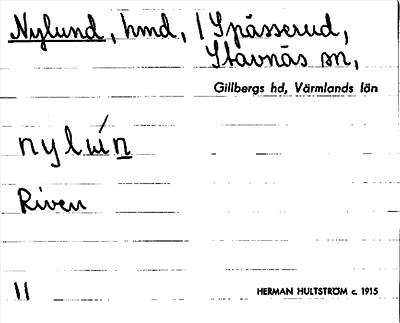 Nylund, hmd, / Spässerud,
Stavnäs sn,
Gillbergs hd, Värmlands län
Riven
11
HERMAN HULTSTRÖM c. 1915